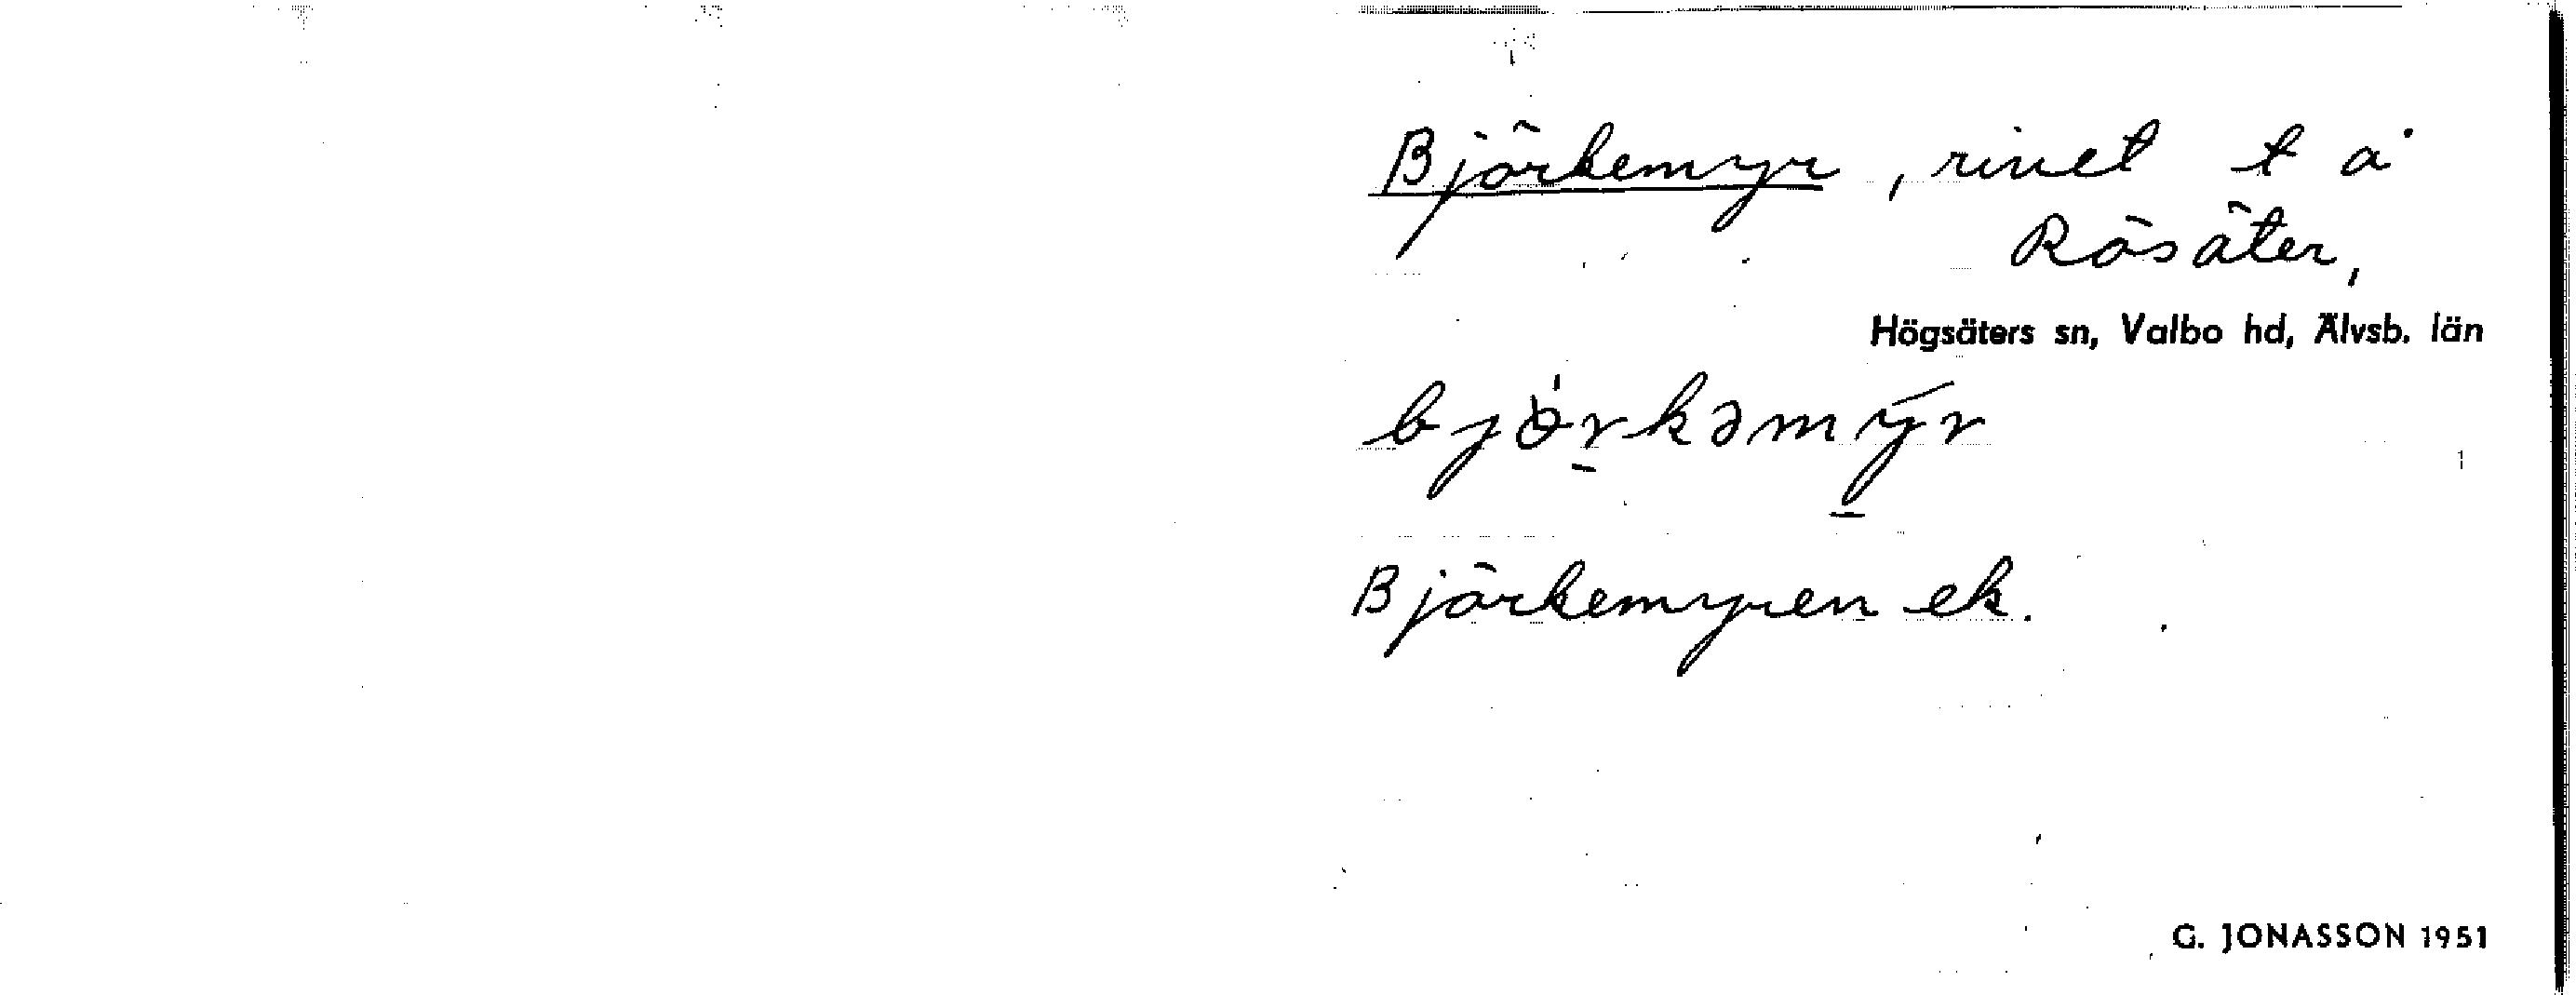 Björkemyr, rivet t å
Rösäter,
Högsäters sn, Valbo hd, Älvsb. län
Björkemyren ek.
G. JONASSON 1951